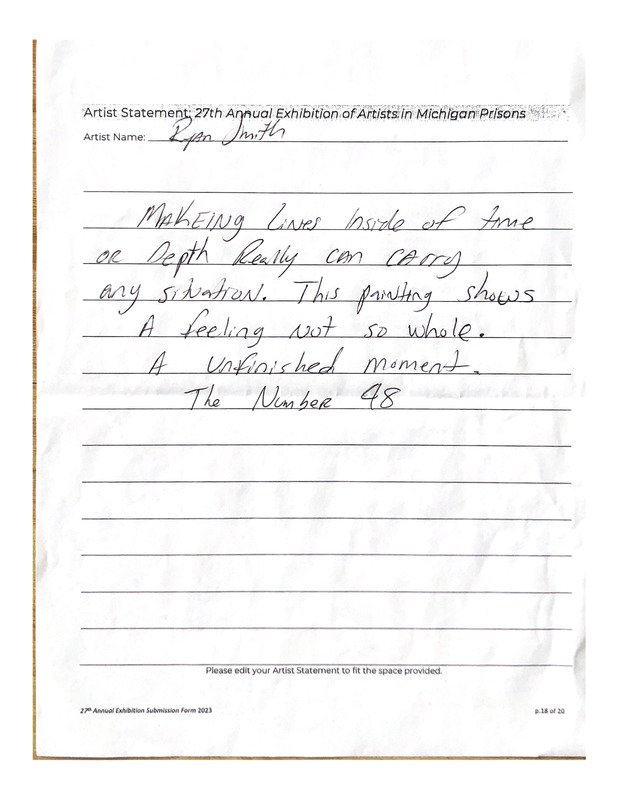 Artist Statement: 27th Annual Exhibition of Artists in Michigan Prisons
Artist Name: Ryan Smith
MAKEING LiNes Inside of time
OR Depth Really can CArry
any situation. This painting shows
A feeling Not so whole.
A Unfinished Moment.
The Number 48
Please edit your Artist Statement to fit the space provided.
27th Annual Exhibition Submission Form 2023
p.18 of 20